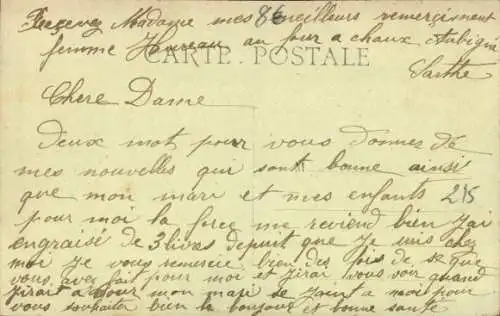 Recevez Madame mes meilleurs remerciment
femme Houreau au four a chaux Aubigné
CARTE POSTALE
Sarthe
Chere Dame
deux mot pour vous donnez de
mes nouvelles qui sont bonne ainsi
que mon mari et mes enfants 215
pour moi la force me reviend bien J'ai
engraisé de 3 livres depuit que Je suis chez
moi Je vous remercie bien des fois de se que
vous avez fait pour moi et J'irai vous voir quand
J'irait a mon mari se Joint a moi pour
vous souhaiter bien le bonjour et bonne santé